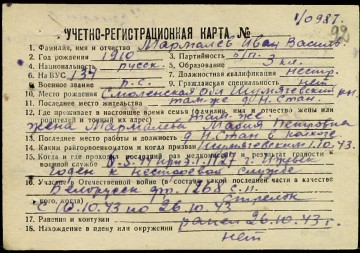 1/0987.
99
УЧЕТНО-РЕГИСТРАЦИОННАЯ КАРТА №
1. Фамилия, имя и отчество Иван Васил.
2. Год рождения 1910 3. Партийность б/п
4. Национальность русск. 5. Образование 3 кл.
6. На ВУС 134 7. Должностная квалификация нестр.
8. Военное звание р-с. 9. Гражданская специальность нет
10. Место рождения Смоленская обл. Шумячский
11. Последнее место жительства там-же Стан.
12. Где проживает в настоящее время семья (имя, отчество жены или
родителей) и точный их адрес там-же.
жена Мария Петровна
13. Последнее место работы и должность Стан в колхозе
14. Каким райгорвоенкоматом и когда призван Шумячским 1.10.43
15. Когда и где проходил раз медкомиссию и результат годности
к военной службе
годен к нестроевой службе
16. Участие в Отечественной войне (где и в составе какой последней части в качестве
кого, когда) 1268 с.п. стрелок
с 16.10.43 по 26.10.43
17. Ранения и контузии ранен 26.10.43 г.
18. Нахождение в плену или окружении нет